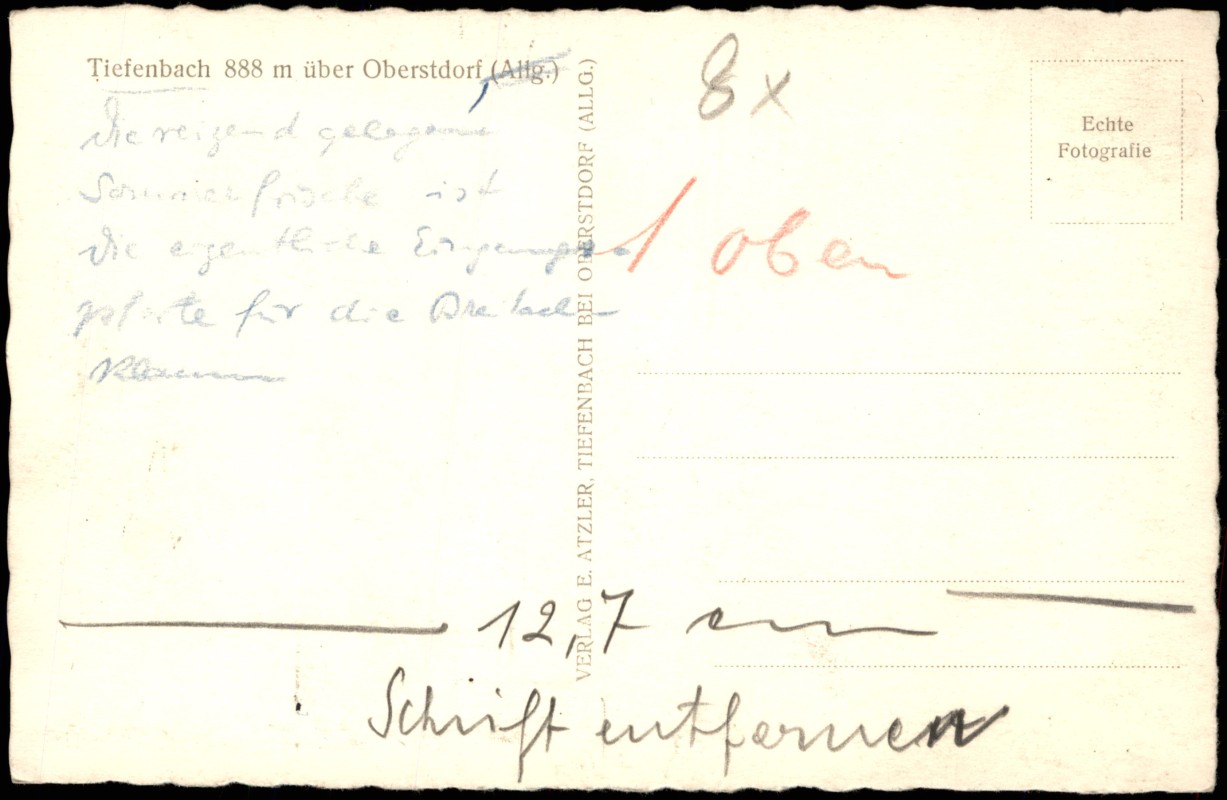 Tiefenbach 888 m über Oberstdorf (Allg.)
die reizend gelegene
Sommerfrische ist
die eigentliche Eingangs-
pforte für die Breitach-
klamm
VERLAG E. ATZLER, TIEFENBACH BEI OBERSTDORF (ALLG.)
8 x
Echte
Fotografie
1 oben
12,7 cm
Schrift entfernen